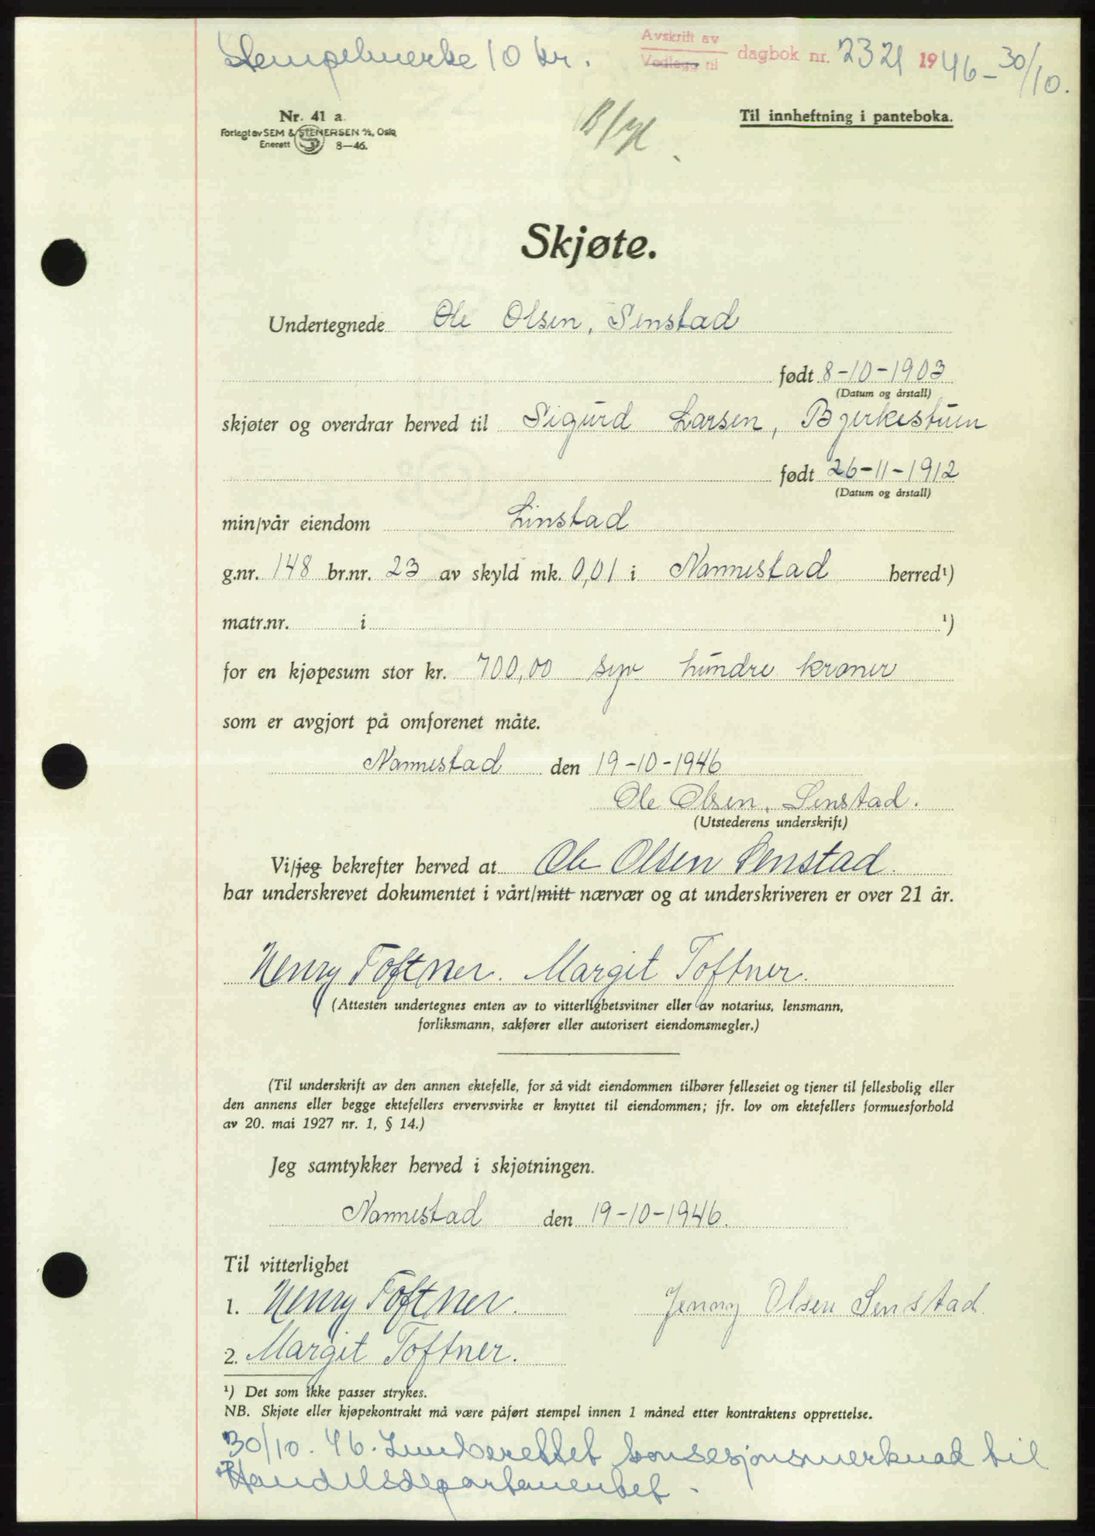 Stempelmerke 10 kr.
Avskrift av
Vedlegg til
dagbok nr. 2321 1946 - 30/10.
Nr. 41 a.
Forlegt av SEM & STENERSEN A/S, Oslo
Enerett 8—46.
Til innheftning i panteboka.
Skjøte.
Undertegnede Ole Olsen, Senstad
født 8-10-1903
(Datum og årstall)
skjøter og overdrar herved til Sigurd Larsen, Bjerkestuen
født 26-11-1912
(Datum og årstall)
min/vår eiendom Linstad
g.nr. 148 br.nr. 23 av skyld mk. 0,01 i Nannestad herred¹)
matr.nr. i ¹)
for en kjøpesum stor kr. 700,00 syv hundre kroner
som er avgjort på omforenet måte.
Nannestad den 19-10-1946
Ole Olsen, Senstad.
(Utstederens underskrift)
Vi/jeg bekrefter herved at Ole Olsen Senstad.
har underskrevet dokumentet i vårt/mitt nærvær og at underskriveren er over 21 år.
Henry Toftner. Margit Toftner.
(Attesten undertegnes enten av to vitterlighetsvitner eller av notarius, lensmann,
forliksmann, sakfører eller autorisert eiendomsmegler.)
(Til underskrift av den annen ektefelle, for så vidt eiendommen tilhører felleseiet og tjener til fellesbolig eller
den annens eller begge ektefellers ervervsvirke er knyttet til eiendommen; jfr. lov om ektefellers formuesforhold
av 20. mai 1927 nr. 1, § 14.)
Jeg samtykker herved i skjøtningen.
Nannestad den 19-10-1946.
Til vitterlighet
1. Henry Toftner. Jenny Olsen Senstad.
2. Margit Toftner.
¹) Det som ikke passer strykes.
NB. Skjøte eller kjøpekontrakt må være påført stempel innen 1 måned etter kontraktens opprettelse.
30/10. 46. Innberettet konsesjonsmerknad til
Handelsdepartementet.